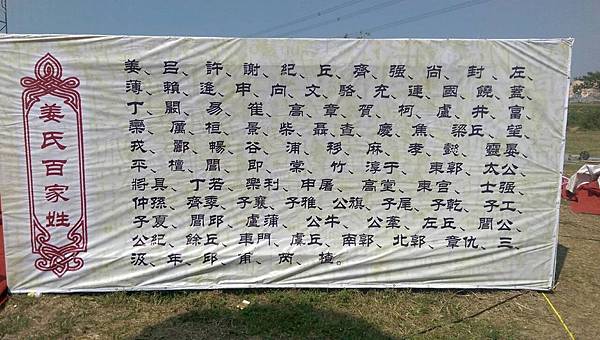 姜氏百家姓
姜、呂、許、謝、紀、丘、齊、强、尚、封、左、
薄、賴、逄、申、向、文、駱、充、連、國、饒、蓋、
丁、闞、易、崔、高、章、賀、柯、盧、井、富、
欒、厲、桓、景、柴、聶、查、慶、焦、梁丘、望、
戎、酈、暢、谷、浦、移、麻、孝、懿、靈、晏、
平、檀、閭、即、棠、竹、淳于、東郭、太公、
將具、丁若、樂利、申屠、高堂、東宮、士强、
仲孫、齊季、子襄、子雅、公旗、子尾、子乾、子工、
子夏、閭邱、盧蒲、公牛、公牽、左丘、閭公、
公紀、餘丘、東門、虞丘、南郭、北郭、章仇、三、
汲、年、邱、甫、芮、楂。